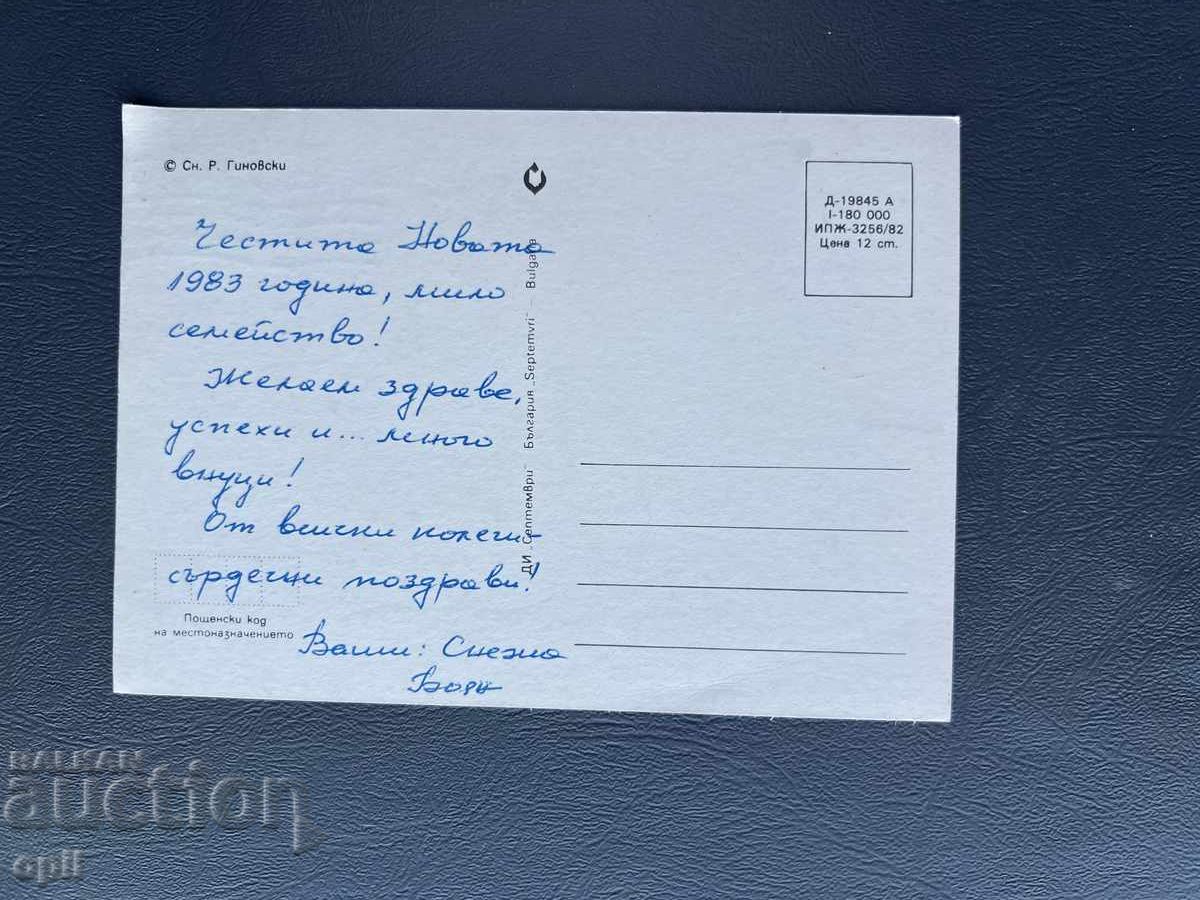 © Сн. Р. Гиновски
Честита Новата
1983 година, мило
семейство!
Желаем здраве,
успехи и... много
внуци!
От всички колеги-
сърдечни поздрави!
Ваши: Снежа
Боян
Пощенски код
на местоназначението
ДИ „Септември" България „Septemvri" Bulgaria
Д-19845 А
I-180 000
ИПЖ-3256/82
Цена 12 ст.
BALKAN
auction
opll